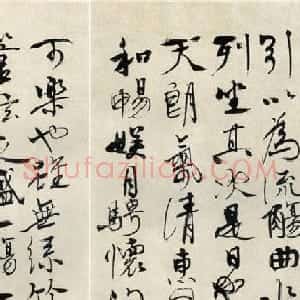 引以為流觴曲
列坐其次是日
天朗氣清惠
和暢娛目騁懷
可樂也雖無絲竹
盛一觴